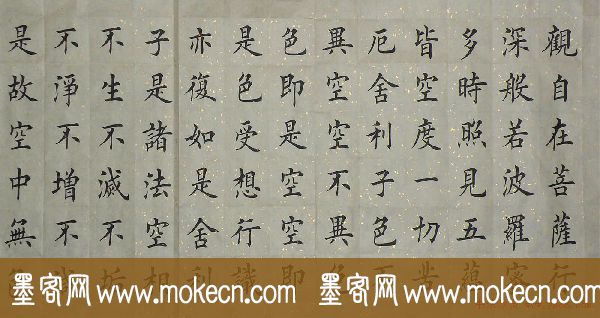 觀自在菩薩行
深般若波羅蜜
多時照見五蘊
皆空度一切苦
厄舍利子色不
異空空不異色
色即是空空即
是色受想行識
亦復如是舍利
子是諸法空相
不生不滅不垢
不淨不增不減
是故空中無色
墨客网 www.mokecn.com 墨客网 www.mokecn.com